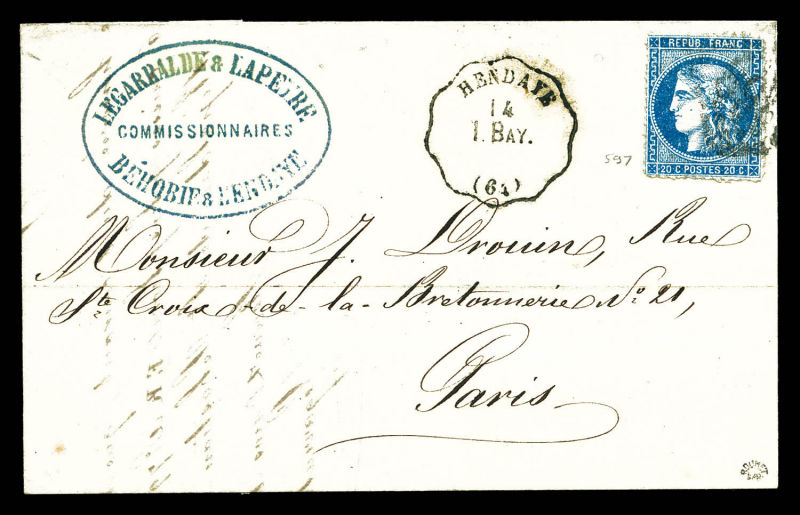 LEGARRALDE & LAPEYRE
COMMISSIONNAIRES
BÉHOBIE & HENDAYE
HENDAYE
14
1. BAY.
(64)
REPUB. FRANC
20 C POSTES 20 C
597
Monsieur J. Drouin, Rue
Ste Croix-de-la-Bretonnerie No 21,
Paris
ROUMET